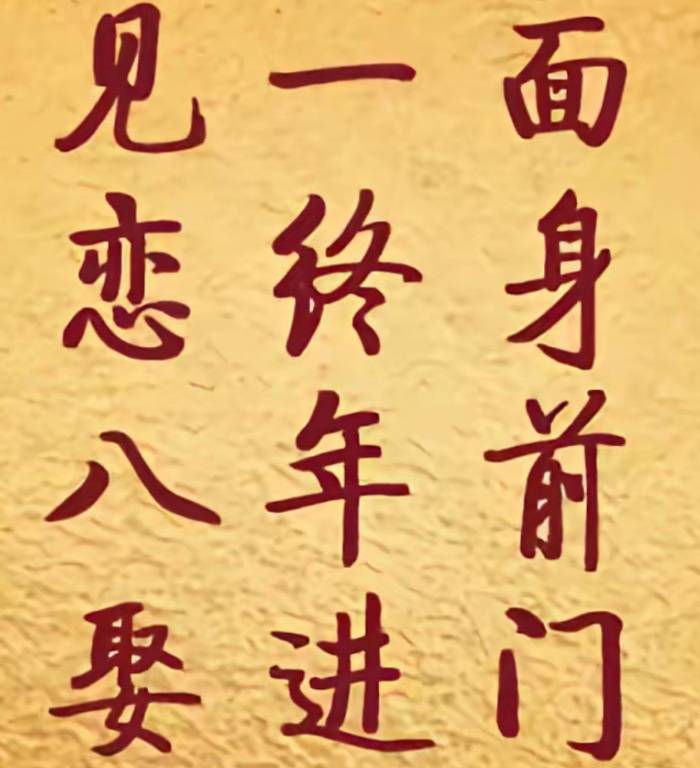 见一面
恋终身
八年前
娶进门